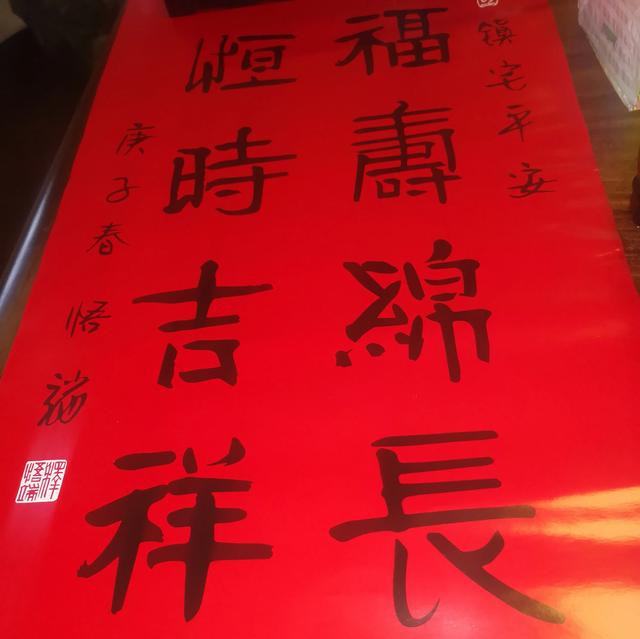 鎮宅平安
福壽綿長
恒時吉祥
庚子春 悟